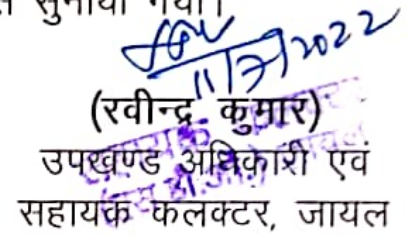 सुनाया गया।
11/7/2022
(रवीन्द्र कुमार)
उपखण्ड अधिकारी एवं
सहायक कलक्टर, जायल